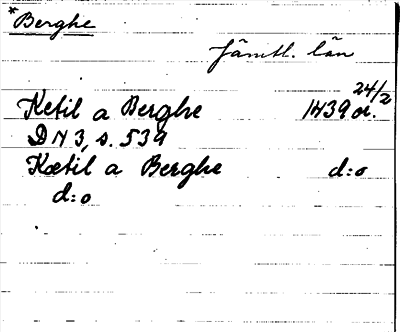 *Berghe
Jämtl. län
24/2
Ketil a Berghe 1439 or.
DN 3, s. 539
Kætil a Berghe d:o
d:o